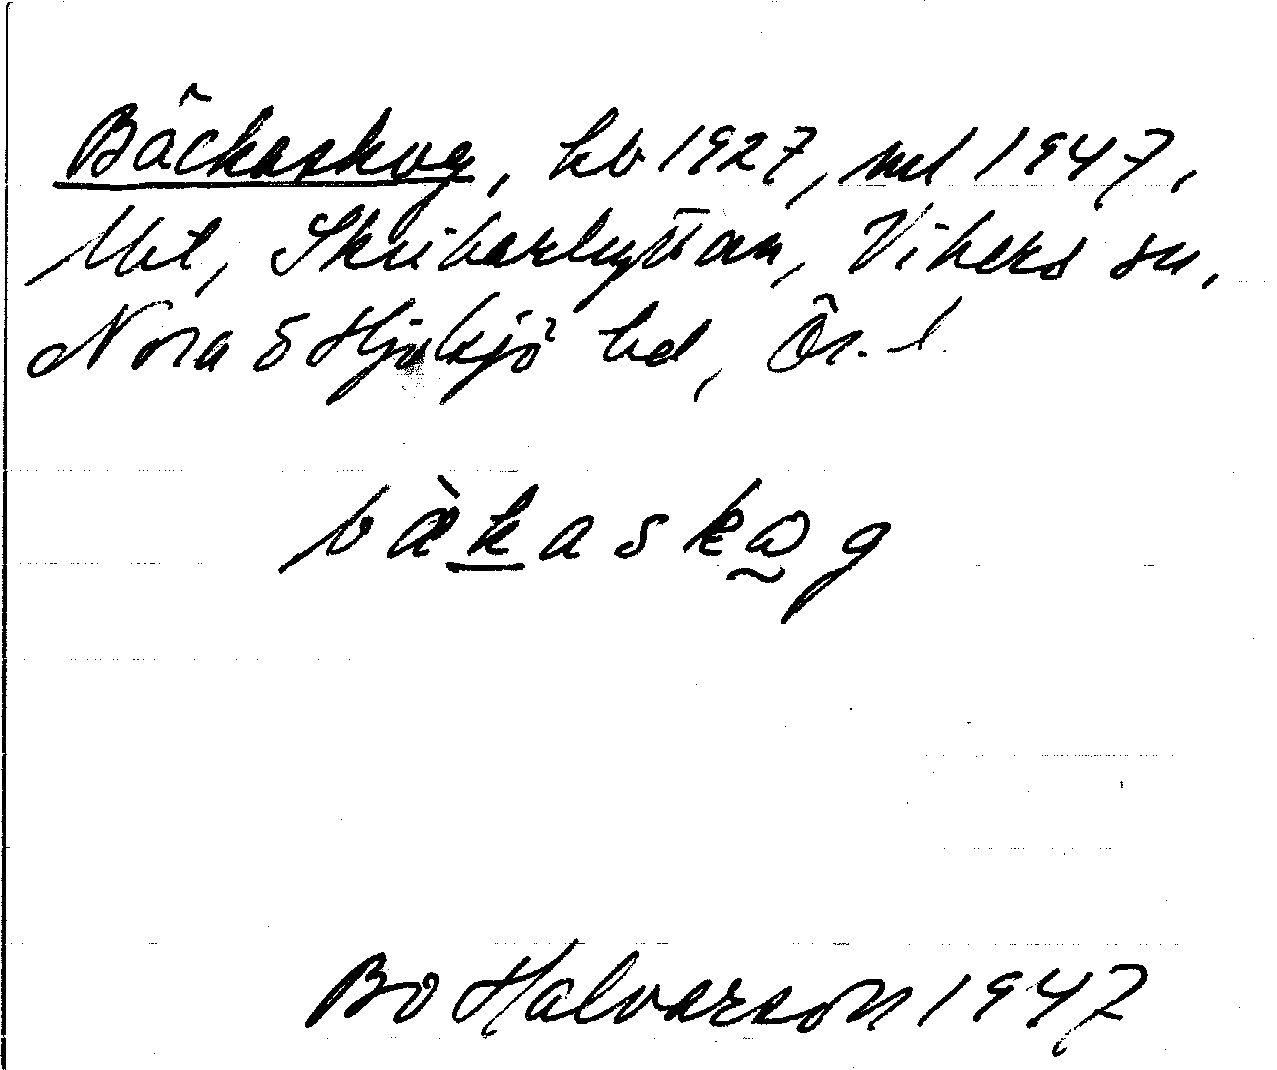 Bäckaskog, kb 1927, ml 1947,
lht, Skrikarhyttan, Vikers sn,
Nora o Hjulsjö hd, Ör. l.
bæ̀kaskωg
Bo Halvarson 1947